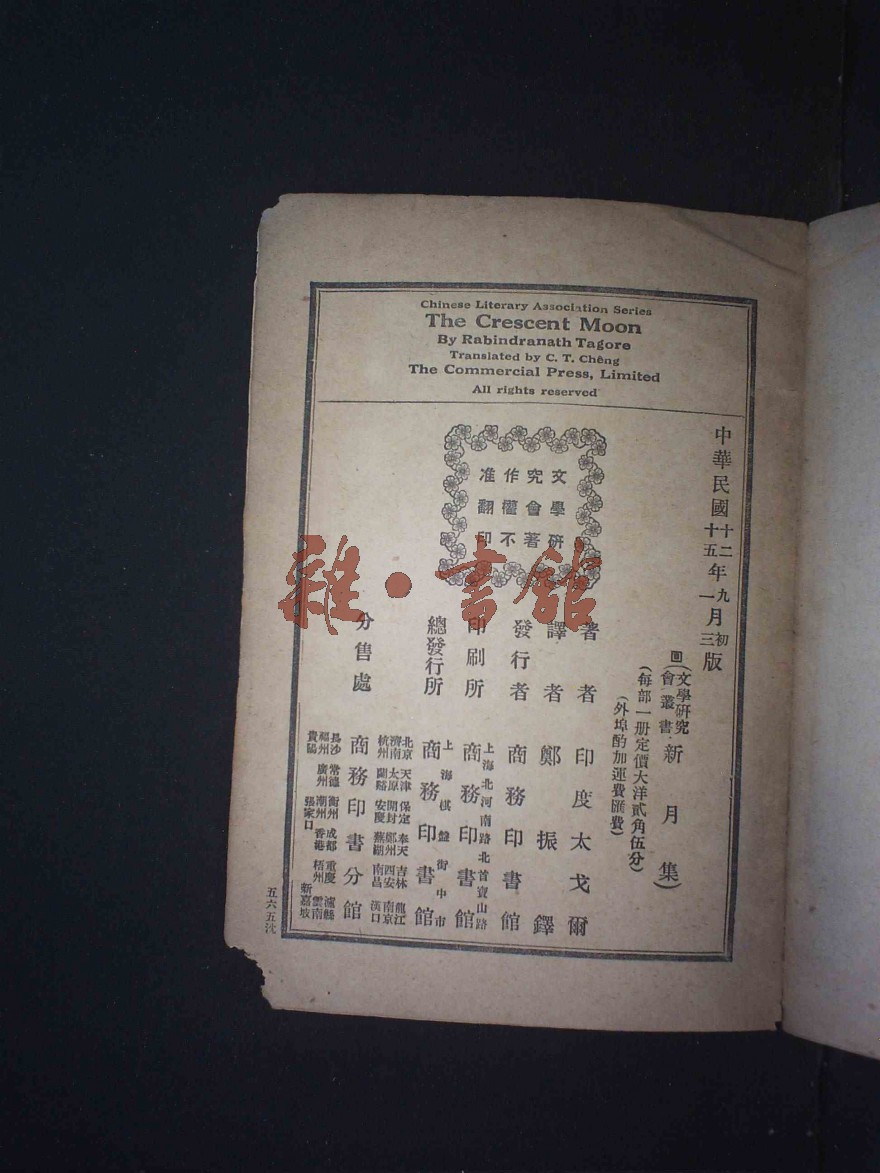 Chinese Literary Association Series
The Crescent Moon
By Rabindranath Tagore
Translated by C. T. Chêng
The Commercial Press, Limited
All rights reserved
中華民國十二年九月初版
十五年一月三版
回(文學研究會叢書新月集)
(每部一冊定價大洋貳角伍分)
(外埠酌加運費匯費)
文學研
究會著
作權不
准翻印
著者 印度太戈爾
譯者 鄭振鐸
發行者 商務印書館
印刷所 上海北河南路北首寶山路 商務印書館
總發行所 上海棋盤街中市 商務印書館
分售處 商務印書分館
北京 天津 保定 奉天 吉林 龍江
濟南 太原 開封 鄭州 西安 南京
杭州 蘭谿 安慶 蕪湖 南昌 漢口
長沙 常德 衡州 成都 重慶 瀘縣
福州 廣州 潮州 香港 梧州 雲南
貴陽 張家口 新嘉坡
五六五沈
雜·書館